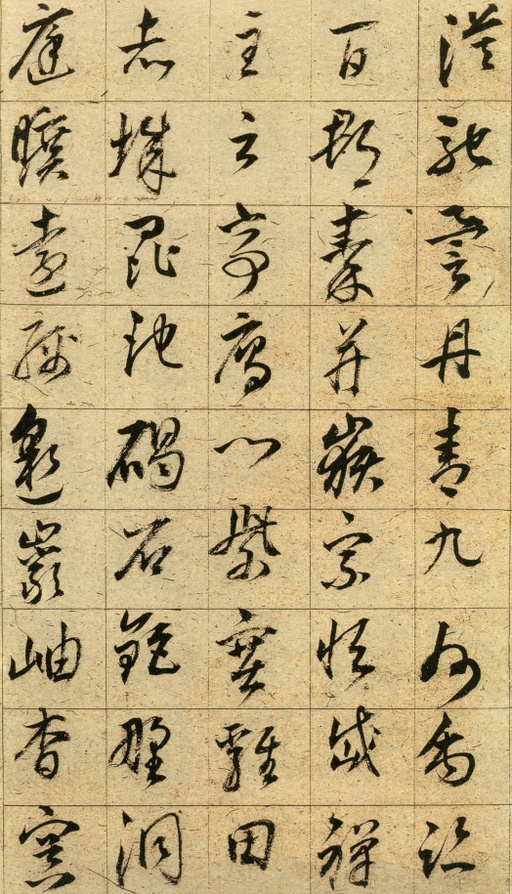 漠馳譽丹青九州禹跡
百郡秦并嶽宗恒岱禪
主云亭雁門紫塞雞田
赤城昆池碣石鉅野洞
庭曠遠綿邈巖岫杳冥